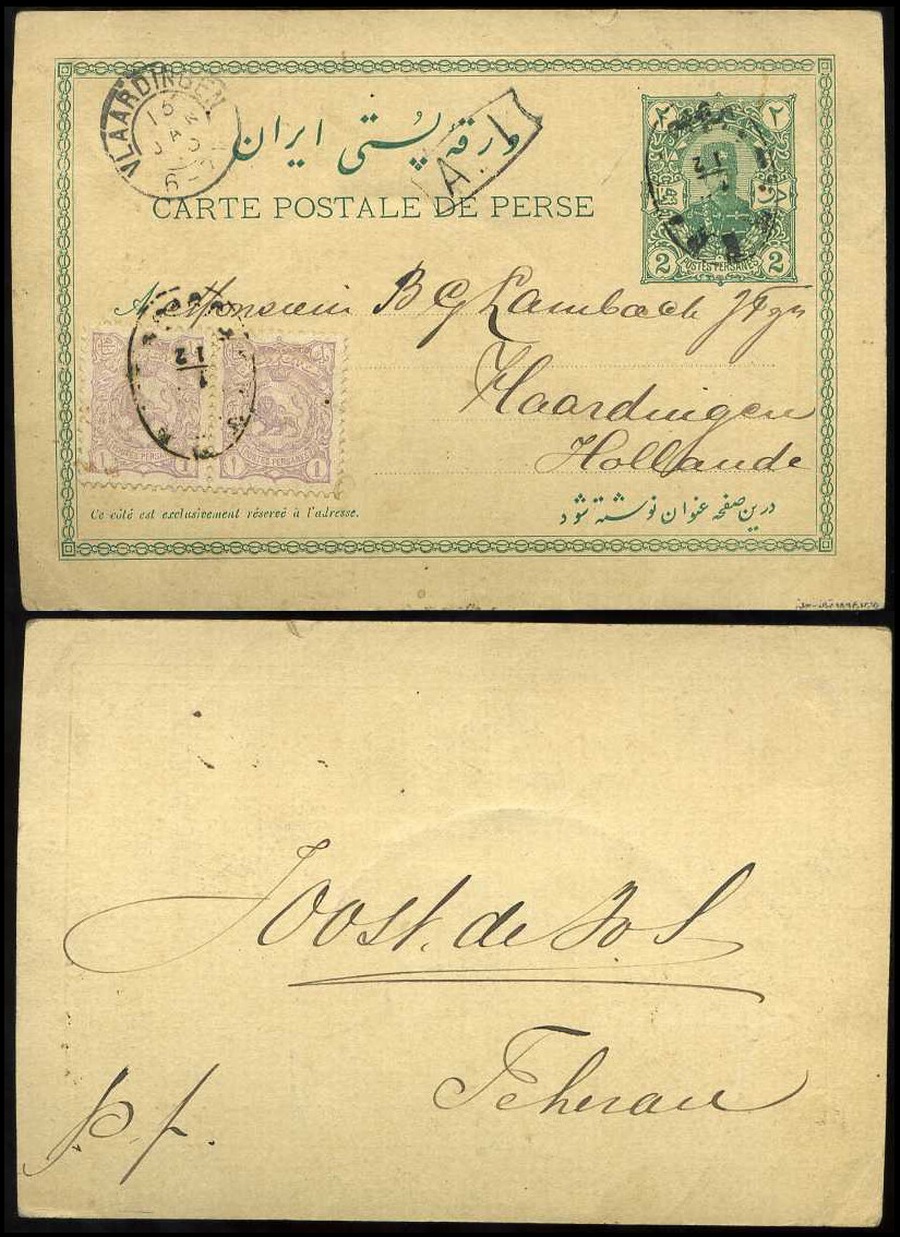 VLAARDINGEN
ورقه پستی ایران
A.
CARTE POSTALE DE PERSE
۲ ۲
1/12
POSTES PERSANES
2 2
A Monsieur B G Lambach
Vlaardingen
Hollande
1/12
POSTES PERSANES
1 1
POSTES PERSANES
1 1
Ce côté est exclusivement réservé à l'adresse.
درین صفحه عنوان نوشته شود
Joost. de
Teheran
p. f.